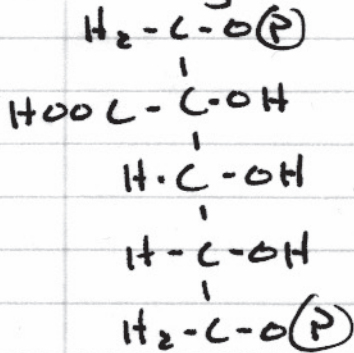 H₂-C-O(P)
HOOC-C-OH
H·C-OH
H-C-OH
H₂-C-O(P)